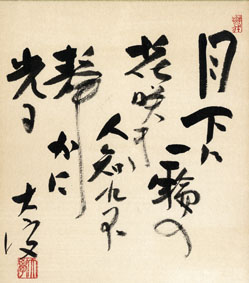 月下に
一輪の
花咲き
人知れず
静かに
光る